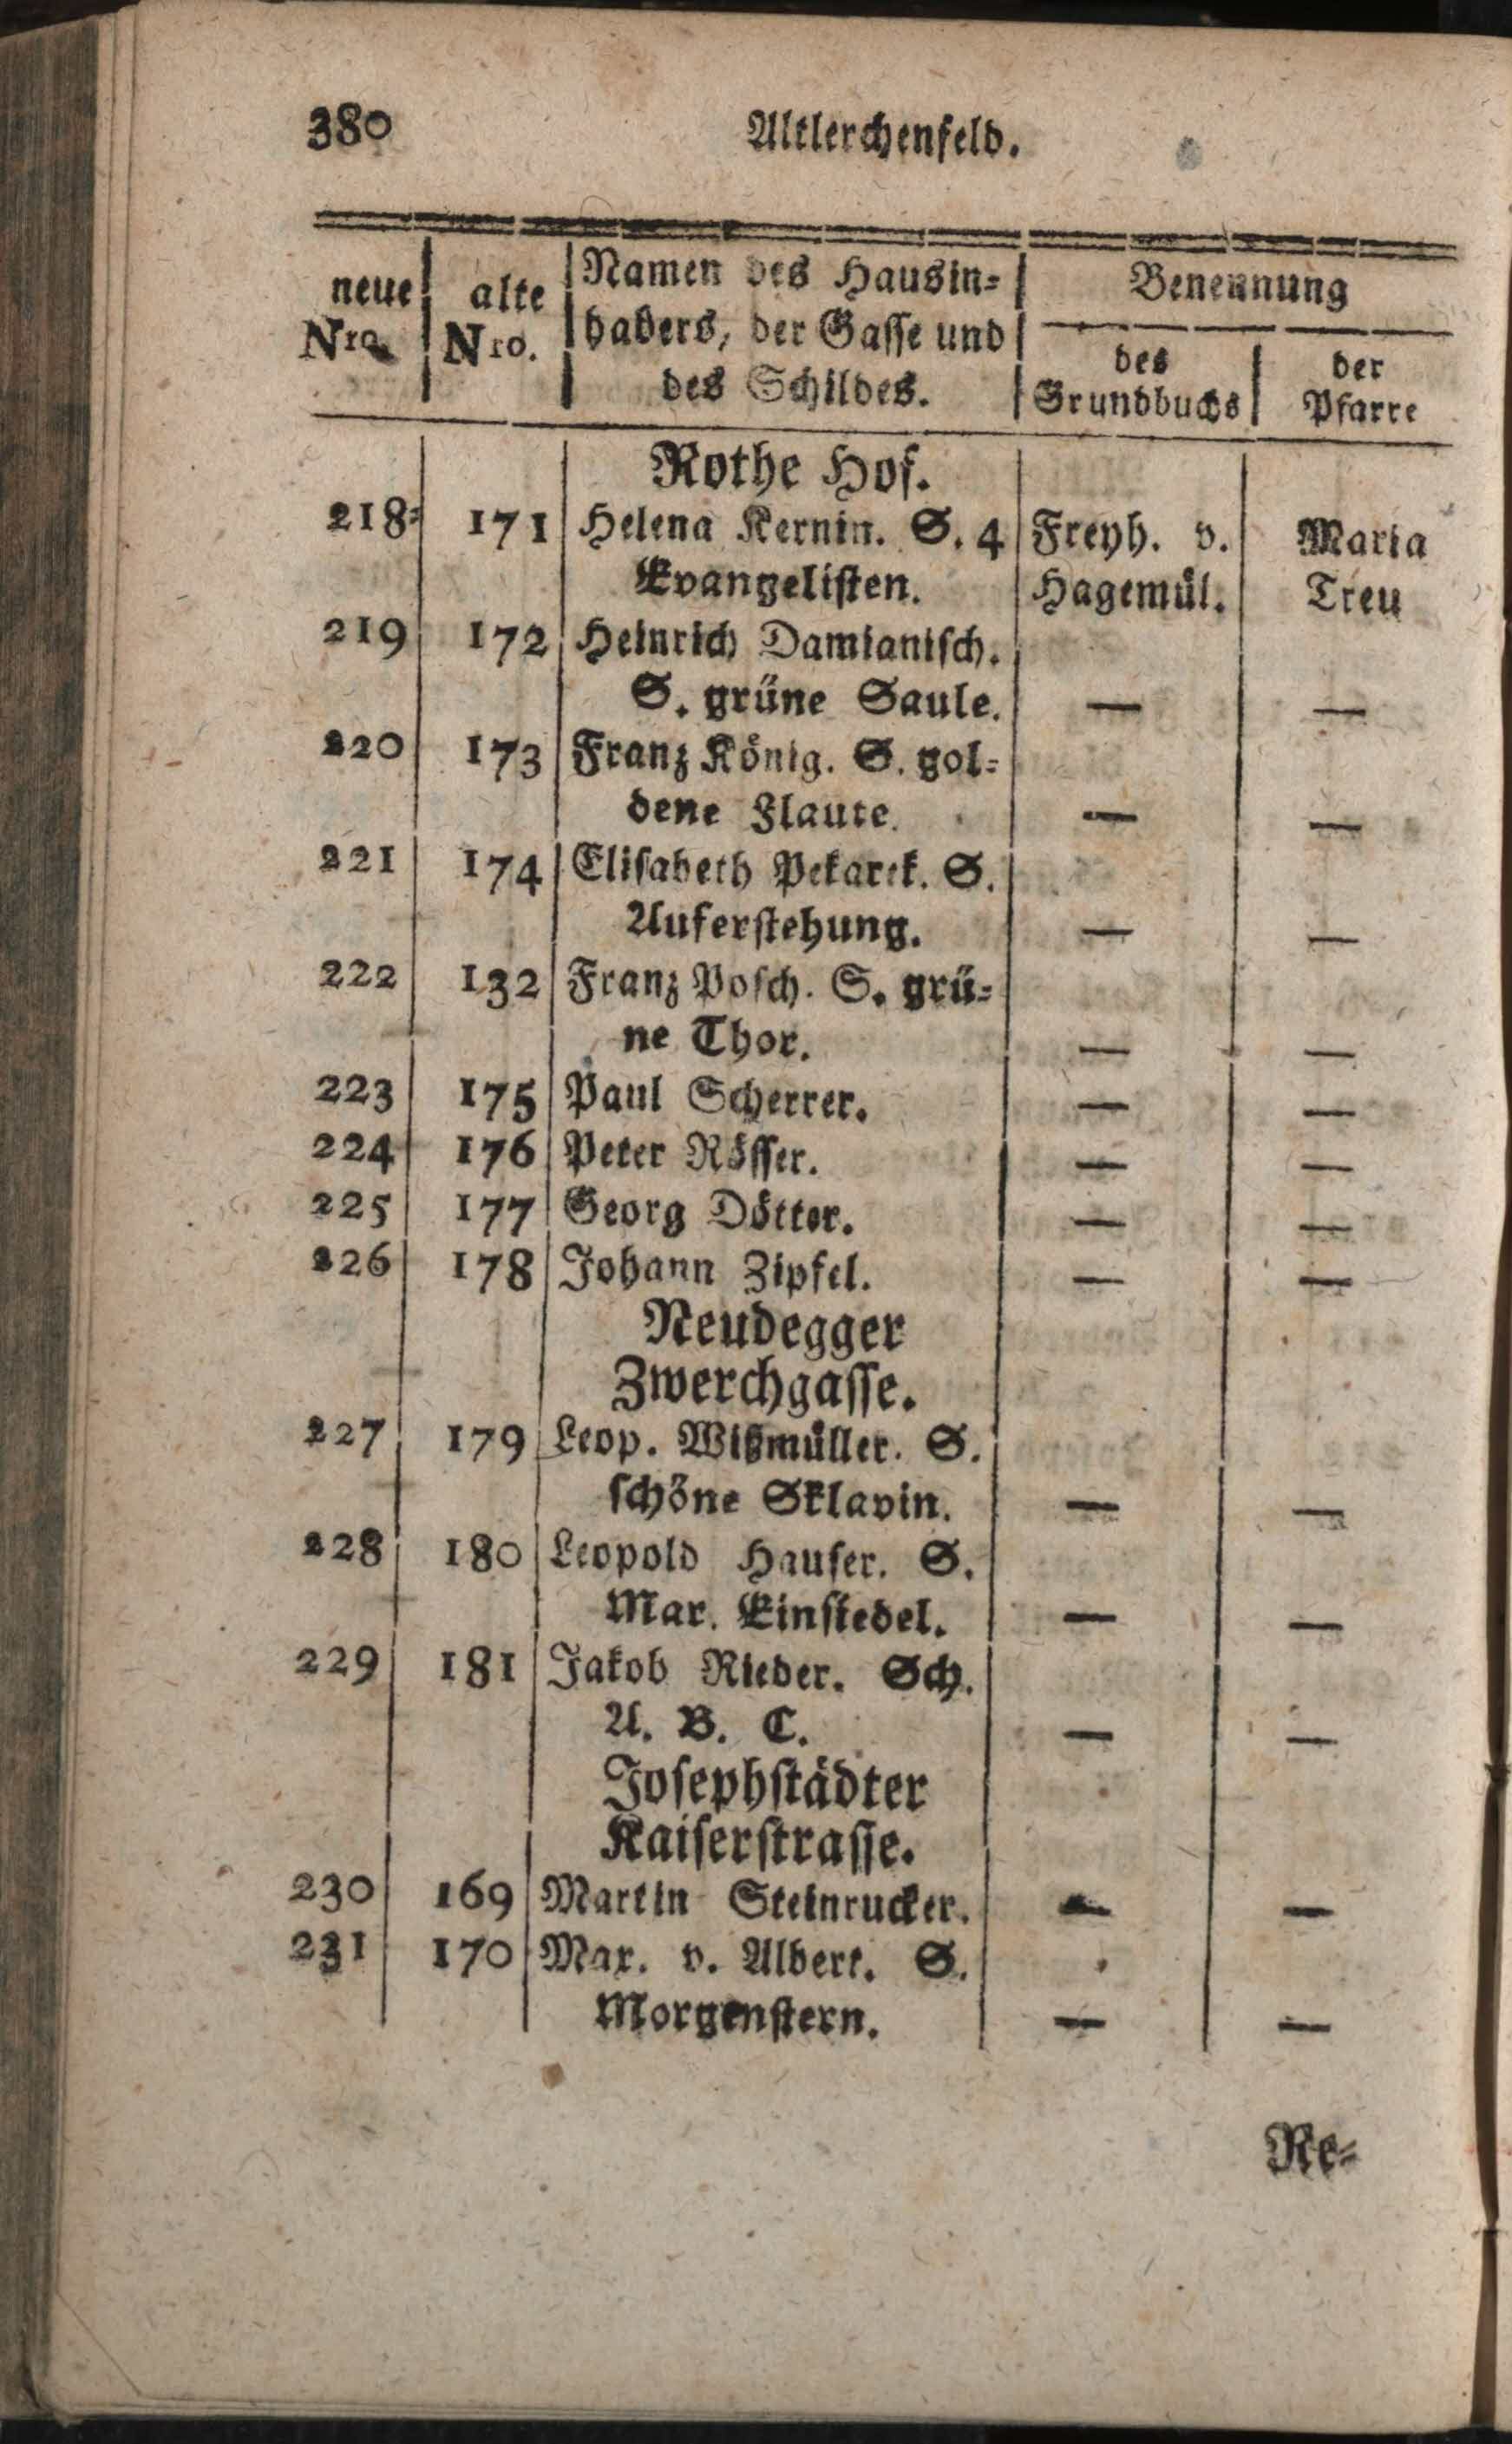 380 Altlerchenfeld.
neue Nro. | alte Nro. | Namen des Hausin= | Benennung
habers, der Gasse und
des Schildes. | des Grundbuchs | der Pfarre
Rothe Hof.
218 171 Helena Kernin. S. 4 Freyh. v. Maria
Evangelisten. Hagemül. Treu
219 172 Heinrich Damianisch.
S. grüne Saule. — —
220 173 Franz König. S. gol=
dene Flaute. — —
221 174 Elisabeth Pekarek. S.
Auferstehung. — —
222 132 Franz Posch. S. grü=
ne Thor. — —
223 175 Paul Scherrer. — —
224 176 Peter Rösser. — —
225 177 Georg Dötter. — —
226 178 Johann Zipfel. — —
Neudegger
Zwerchgasse.
227 179 Leop. Wißmüller. S.
schöne Sklavin. — —
228 180 Leopold Hauser. S.
Mar. Einsiedel. — —
229 181 Jakob Rieder. Sch.
A. B. C. — —
Josephstädter
Kaiserstrasse.
230 169 Martin Steinrucker. — —
231 170 Max. v. Albert. S.
Morgenstern. — —
Re=